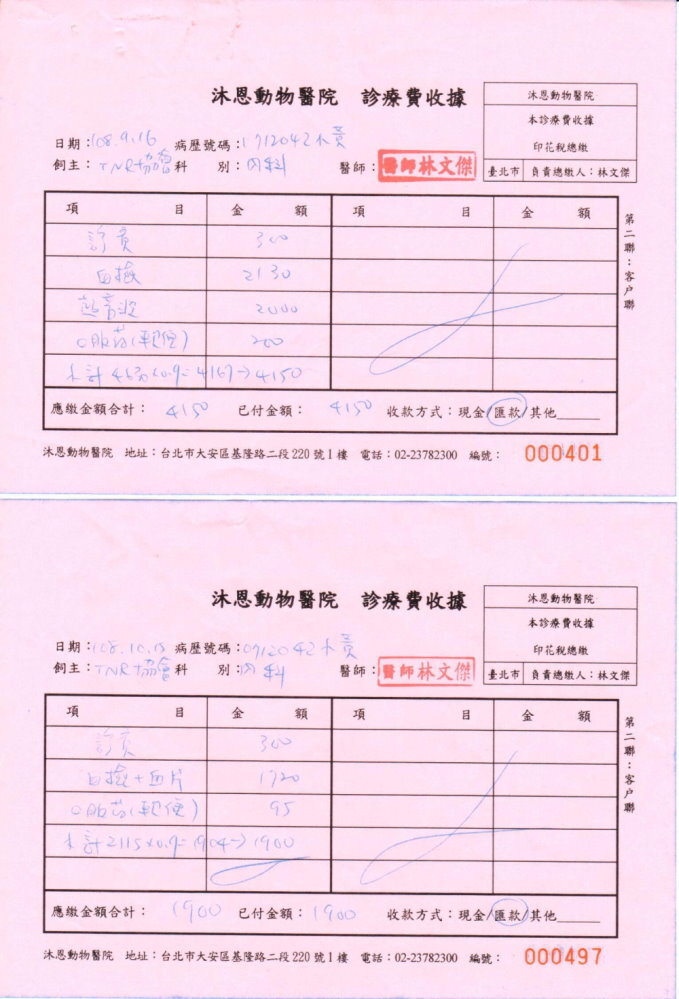 沐恩動物醫院 診療費收據
沐恩動物醫院
本診療費收據
印花稅總繳
臺北市 負責總繳人:林文傑
日期:108.9.16 病歷號碼:1712042 木黃
飼主:TNR協會 科 別:內科 醫師:醫師林文傑
項 目 金 額 項 目 金 額
診費 300
血檢 2130
2000
口服藥(軟便) 200
小計 4630x0.9=4167→4150
應繳金額合計: 4150 已付金額: 4150 收款方式:現金/匯款/其他______
第二聯:客戶聯
沐恩動物醫院 地址:台北市大安區基隆路二段220號1樓 電話:02-23782300 編號: 000401
沐恩動物醫院 診療費收據
沐恩動物醫院
本診療費收據
印花稅總繳
臺北市 負責總繳人:林文傑
日期:108.10.15 病歷號碼:0712042 木黃
飼主:TNR協會 科 別:內科 醫師:醫師林文傑
項 目 金 額 項 目 金 額
診費 300
血檢+血片 1720
口服藥(軟便) 95
小計2115x0.9=1904→1900
應繳金額合計: 1900 已付金額:1900 收款方式:現金/匯款/其他______
第二聯:客戶聯
沐恩動物醫院 地址:台北市大安區基隆路二段220號1樓 電話:02-23782300 編號: 000497